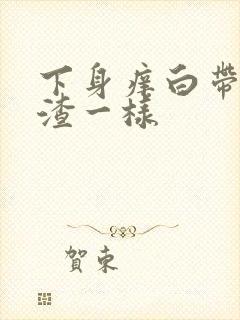 下身痒白带
渣一样
賀東